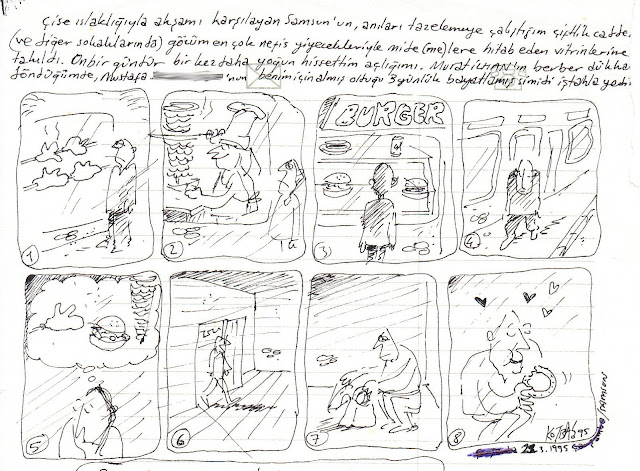 Çise ıslaklığıyla akşamı karşılayan Samsun'un, anıları tazelemeye çalıştığım çiftlik cadde.
(ve diğer sokaklarında) gözüm en çok nefis yiyecekleriyle mide(me)lere hitab eden vitrinlerine
takıldı. Onbir gündür bir kez daha yoğun hissettim açlığımı. Murat İLHAN'ın berber dükka
döndüğümde, Mustafa 'nun benim için almış olduğu 3 günlük bayatlamış simidi iştahla yedi
BURGER
1
2
3
4
5
6
7
8
95
22.3.1995
SAMSUN